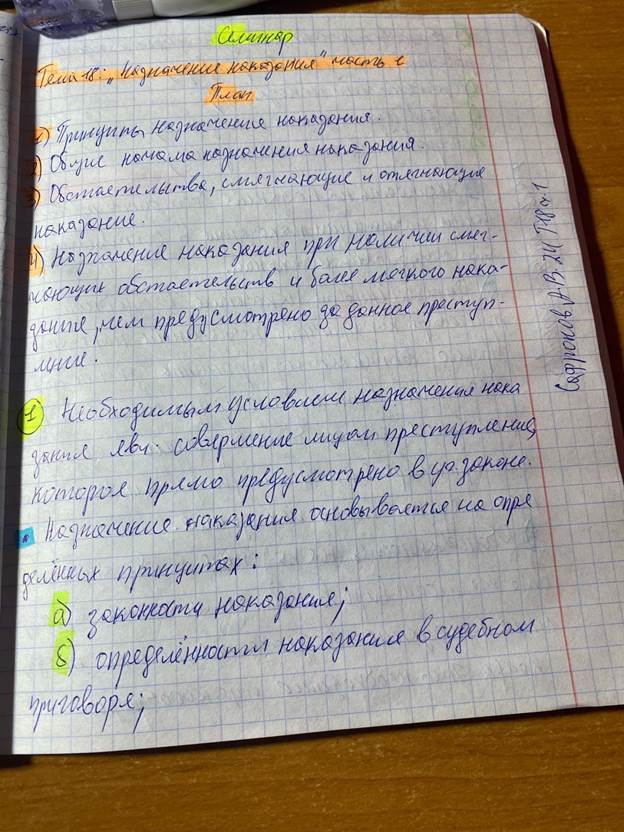 Семинар
Тема 18: „Назначение наказания" часть 1
План
1) Принципы назначения наказания.
2) Общие начала назначения наказания.
3) Обстоятельства, смягчающие и отягчающие
наказание.
4) Назначение наказания при наличии смяг-
чающих обстоятельств и более мягкого нака-
зания, чем предусмотрено за данное преступ-
ление.
1 Необходимым условием назначения нака
зания явл. совершение лицом преступления,
которое прямо предусмотрено в уг. законе.
Назначение наказания основывается на опре
делённых принципах:
а) законности наказания;
б) определённости наказания в судебном
приговоре;
Сафронов А-В-24